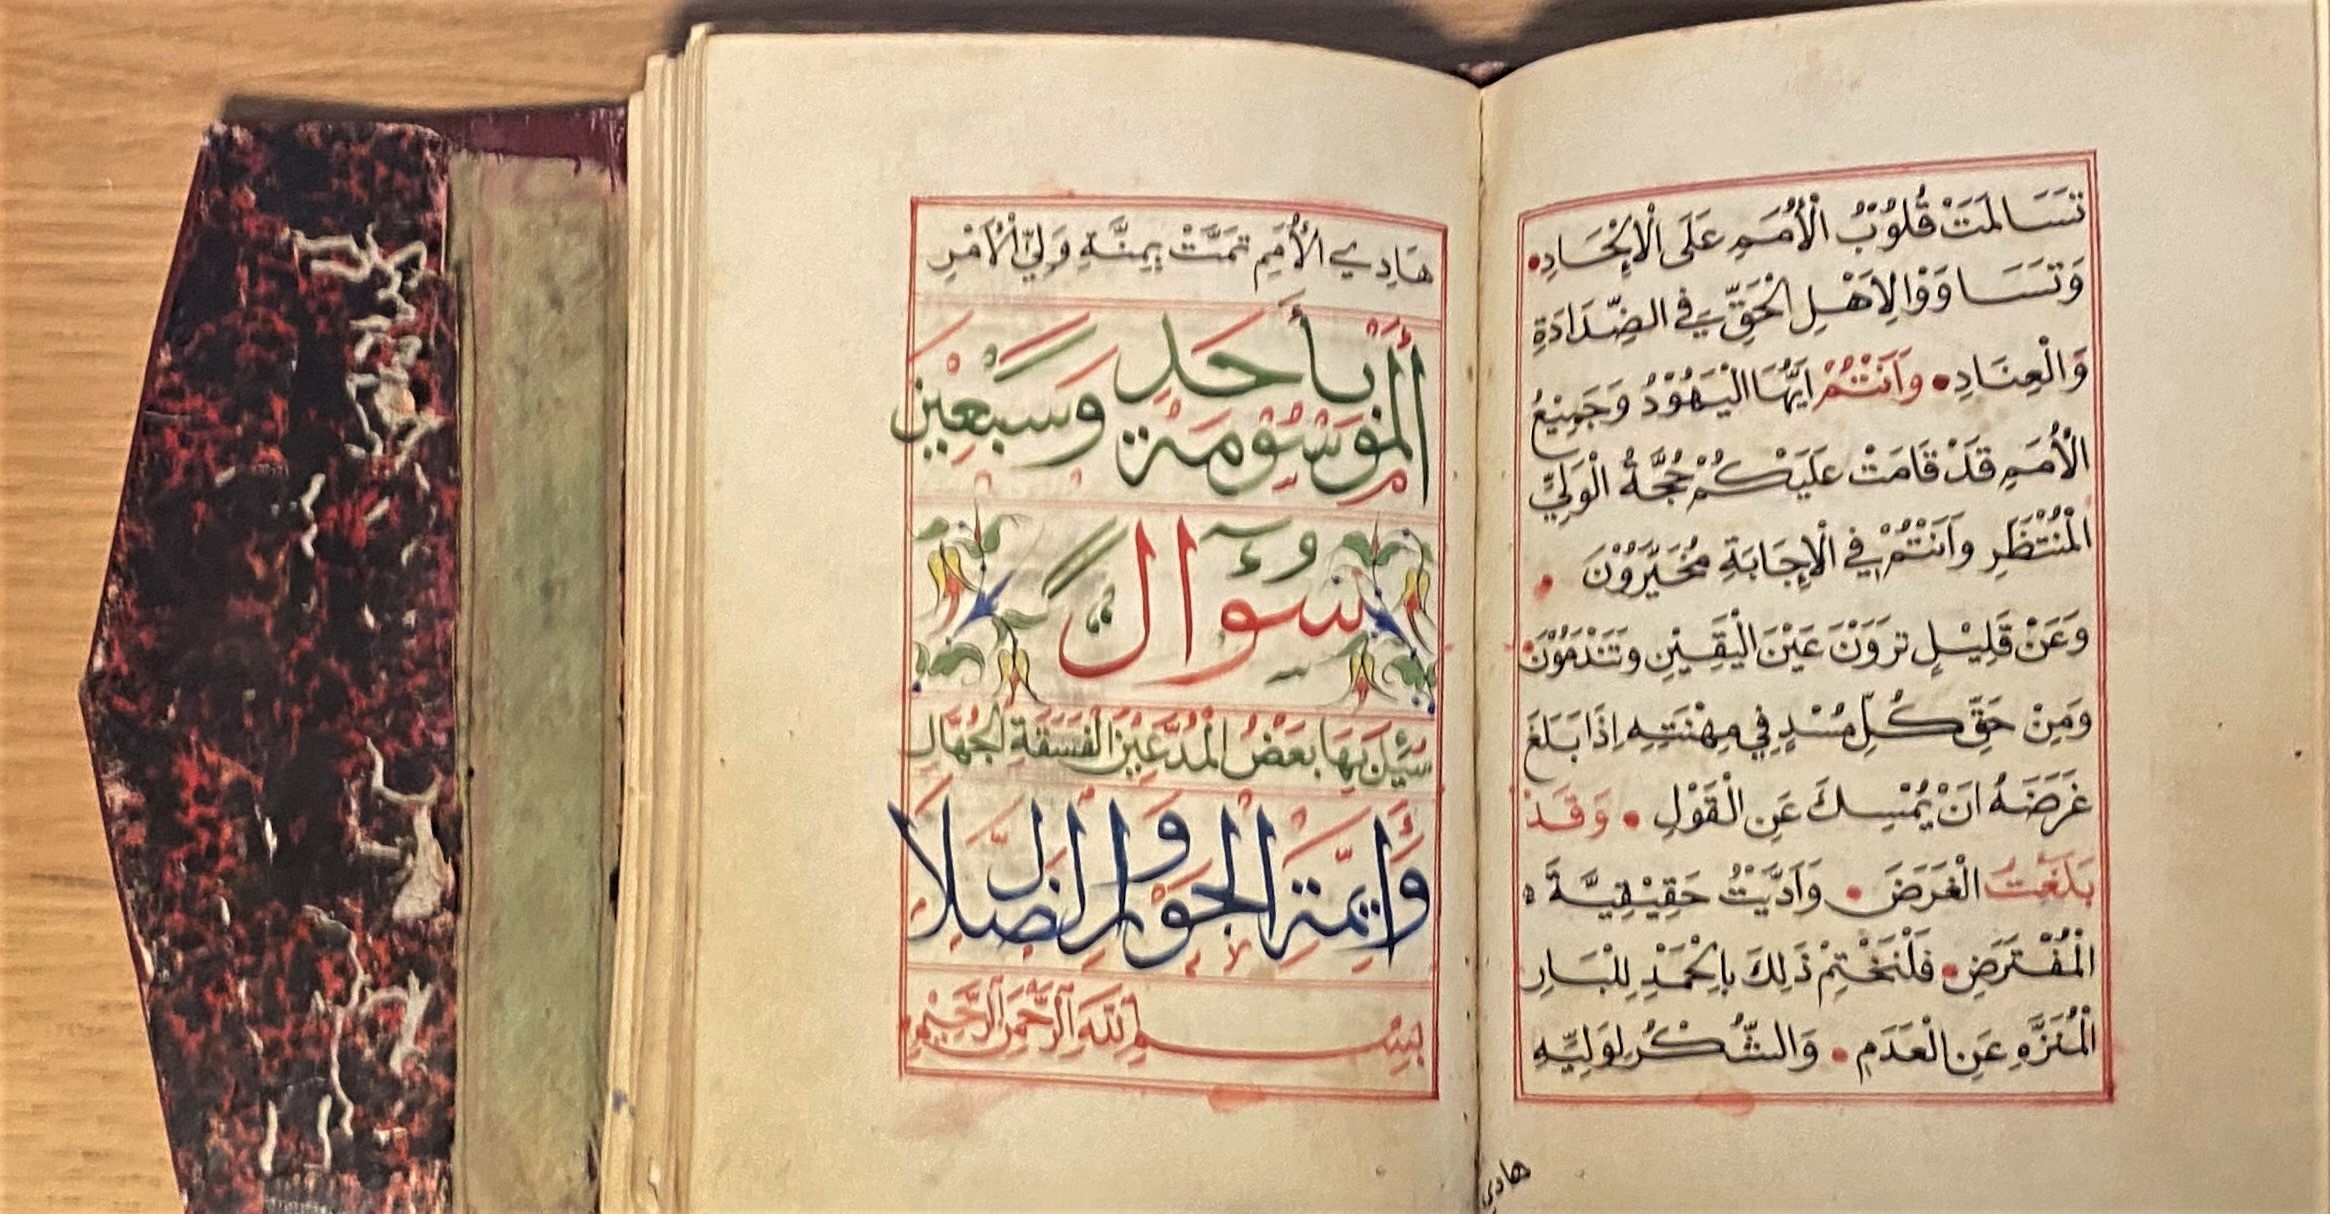 تَسَالَمَتْ قُلُوْبُ الْأُمَمِ عَلَى الْإِلْحَادِ
وَتَسَاوَوْا لِاَهْلِ الْحَقِّ فِي الضِّدَادَةِ
وَالْعِنَادِ • وَاَنْتُمْ اَيُّهَا الْيَهُوْدُ وَجَمِيْعُ
الْأُمَمِ قَدْ قَامَتْ عَلَيْكُمْ حُجَّةُ الْوَلِيِّ
الْمُنْتَظَرِ وَاَنْتُمْ فِي الْاِجَابَةِ مُخَيَّرُوْنَ •
وَعَنْ قَلِيْلٍ تَرَوْنَ عَيْنَ الْيَقِيْنِ وَتَنْدَمُوْنَ •
وَمِنْ حَقِّ كُلِّ مُسْدٍ فِي مِهْنَتِهِ اِذَا بَلَغَ
غَرَضَهُ اَنْ يُمْسِكَ عَنِ الْقَوْلِ • وَقَدْ
بَلَغَتُ الْغَرَضَ • وَاَدَّيْتُ حَقِيْقِيَّةَ
الْمُفْتَرَضِ • فَلْنَخْتِمْ ذَلِكَ بِالْحَمْدِ لِلْبَارِ
الْمُنَزَّهِ عَنِ الْعَدَمِ • وَالشُّكْرُ لِوَلِيِّهِ
هادي
هَادِي الْأُمَمِ تَمَّتْ بِمِنَّةِ وَلِيِّ الْاَمْرِ
اَلْمَوْسُوْمَةُ بِأَحَدِ وَسَبْعِيْنَ
سُوَال
سُئِلَ بِهَا بَعْضُ الْمُدَّعِيْنَ الْفَسَقَةِ الْجُهَّال
وَأَيِمَّةِ الْجَوْرِ وَالضَّلَال
بِسْمِ اللّهِ الرَّحْمَنِ الرَّحِيْمِ